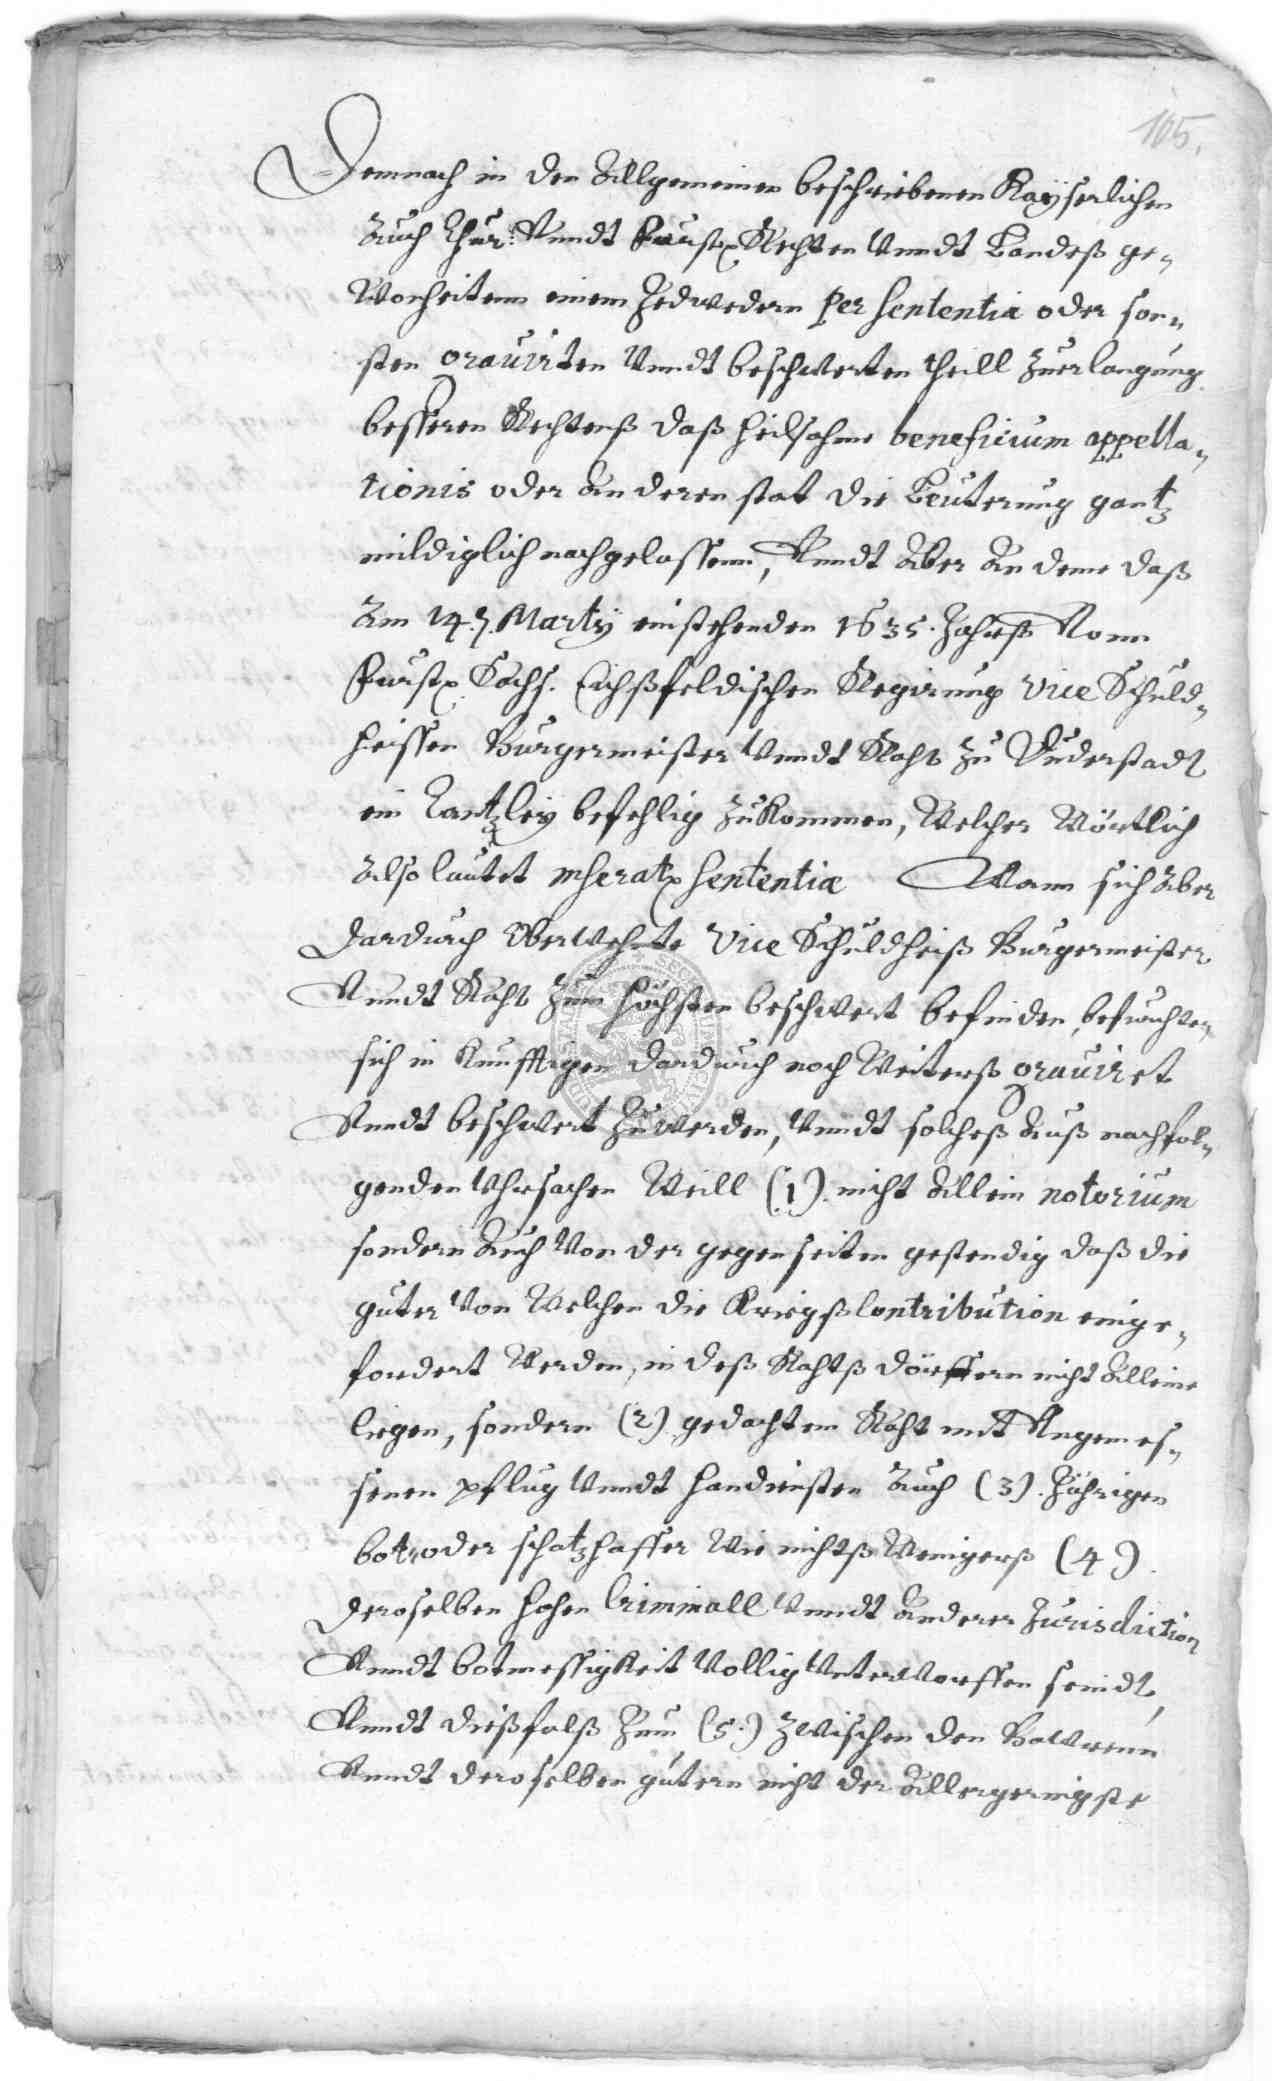 105.
Demnach in den Allgemeinen beschriebenen Kayserlichen
Auch Chur: Vnndt Furstl. Rechten Vnndt Landeß ge-
Wonheitenn einem Jedwedern per sententiā oder son-
sten grauirten Vnndt beschwerten theill Zuerlangung
besseren Rechtenß daß heilsahme beneficium appella-
tionis oder an deren stat die Leuterung gantz
mildiglich nachgelassenn, Vnndt Aber An deme daß
Am 14. Marty einstehenden 1635. Jahrß Vonn
Furstl. Sachs. Eichßfeldischen Regirung Vice Schuld-
heissen Burgermeister Vnndt Raht Zu Duderstadt
ein Cantzley befehlig Zukommen, Welcher Wörtlich
Also lautet Inseratr sententia Wann sich Aber
dardurch Oberwehnte Vice Schuldheiß Burgermeister
Vnndt Raht Zum höchsten beschwert befinden, befurchten
sich in Kunfftigen dardurch noch Weiterß grauiret
Vnndt beschwert Zuwerden, Vnndt solcheß Auß nachfol-
genden Vhrsachen Weill (1). nicht Allein notorium
sondern Auch Von der gegenseiten gestendig daß die
guter Von Welchen die Kriegßcontribution einge-
fordert Werden, in deß Rahtß dörffern nicht Alleine
liegen, sondern (2) gedachtem Raht mit Angemes-
senen pflug Vnndt handiensten Auch (3). Jährigen
bot, oder schatzhaffer Wie nichtß Wenigerß (4).
deroselben hohen Criminall Vnndt Anderer Jurisdiction
Vnndt botmessigkeit Vollig Vnterworffen seindt,
Vnndt dießfalß Zum (5.) Zwischen den Bawrenn
Vnndt deroselben gutern nicht der Allergeringste